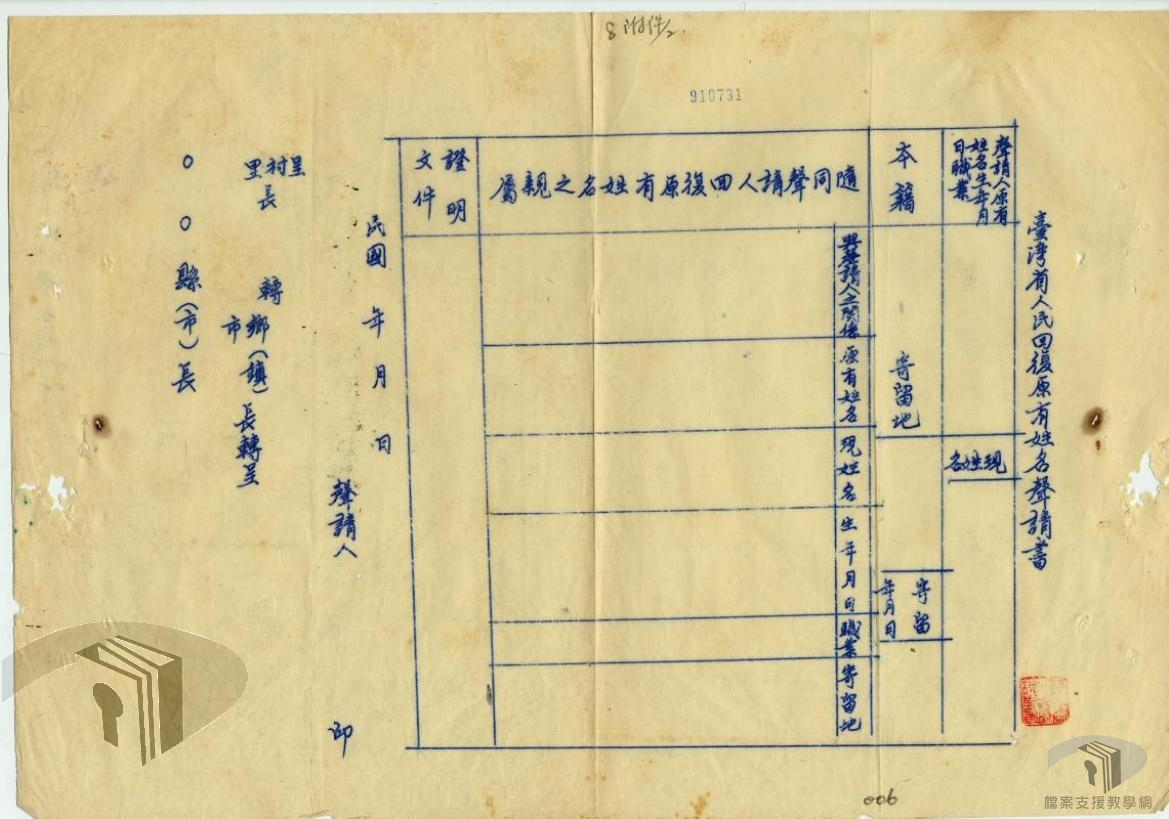 8 附件2
910731
臺灣省人民回復原有姓名聲請書
聲請人原有
姓名生年月
日職業
現姓名
本籍
寄留地
寄留
年月日
隨同聲請人回復原有姓名之親屬
與聲請人之關係
原有姓名
現姓名
生年月日
職業
寄留地
證明
文件
民國 年 月 日
聲請人 印
呈村
里長
轉
鄉(鎮)
市
長轉呈
○○縣(市)長
006
檔案支援教學網